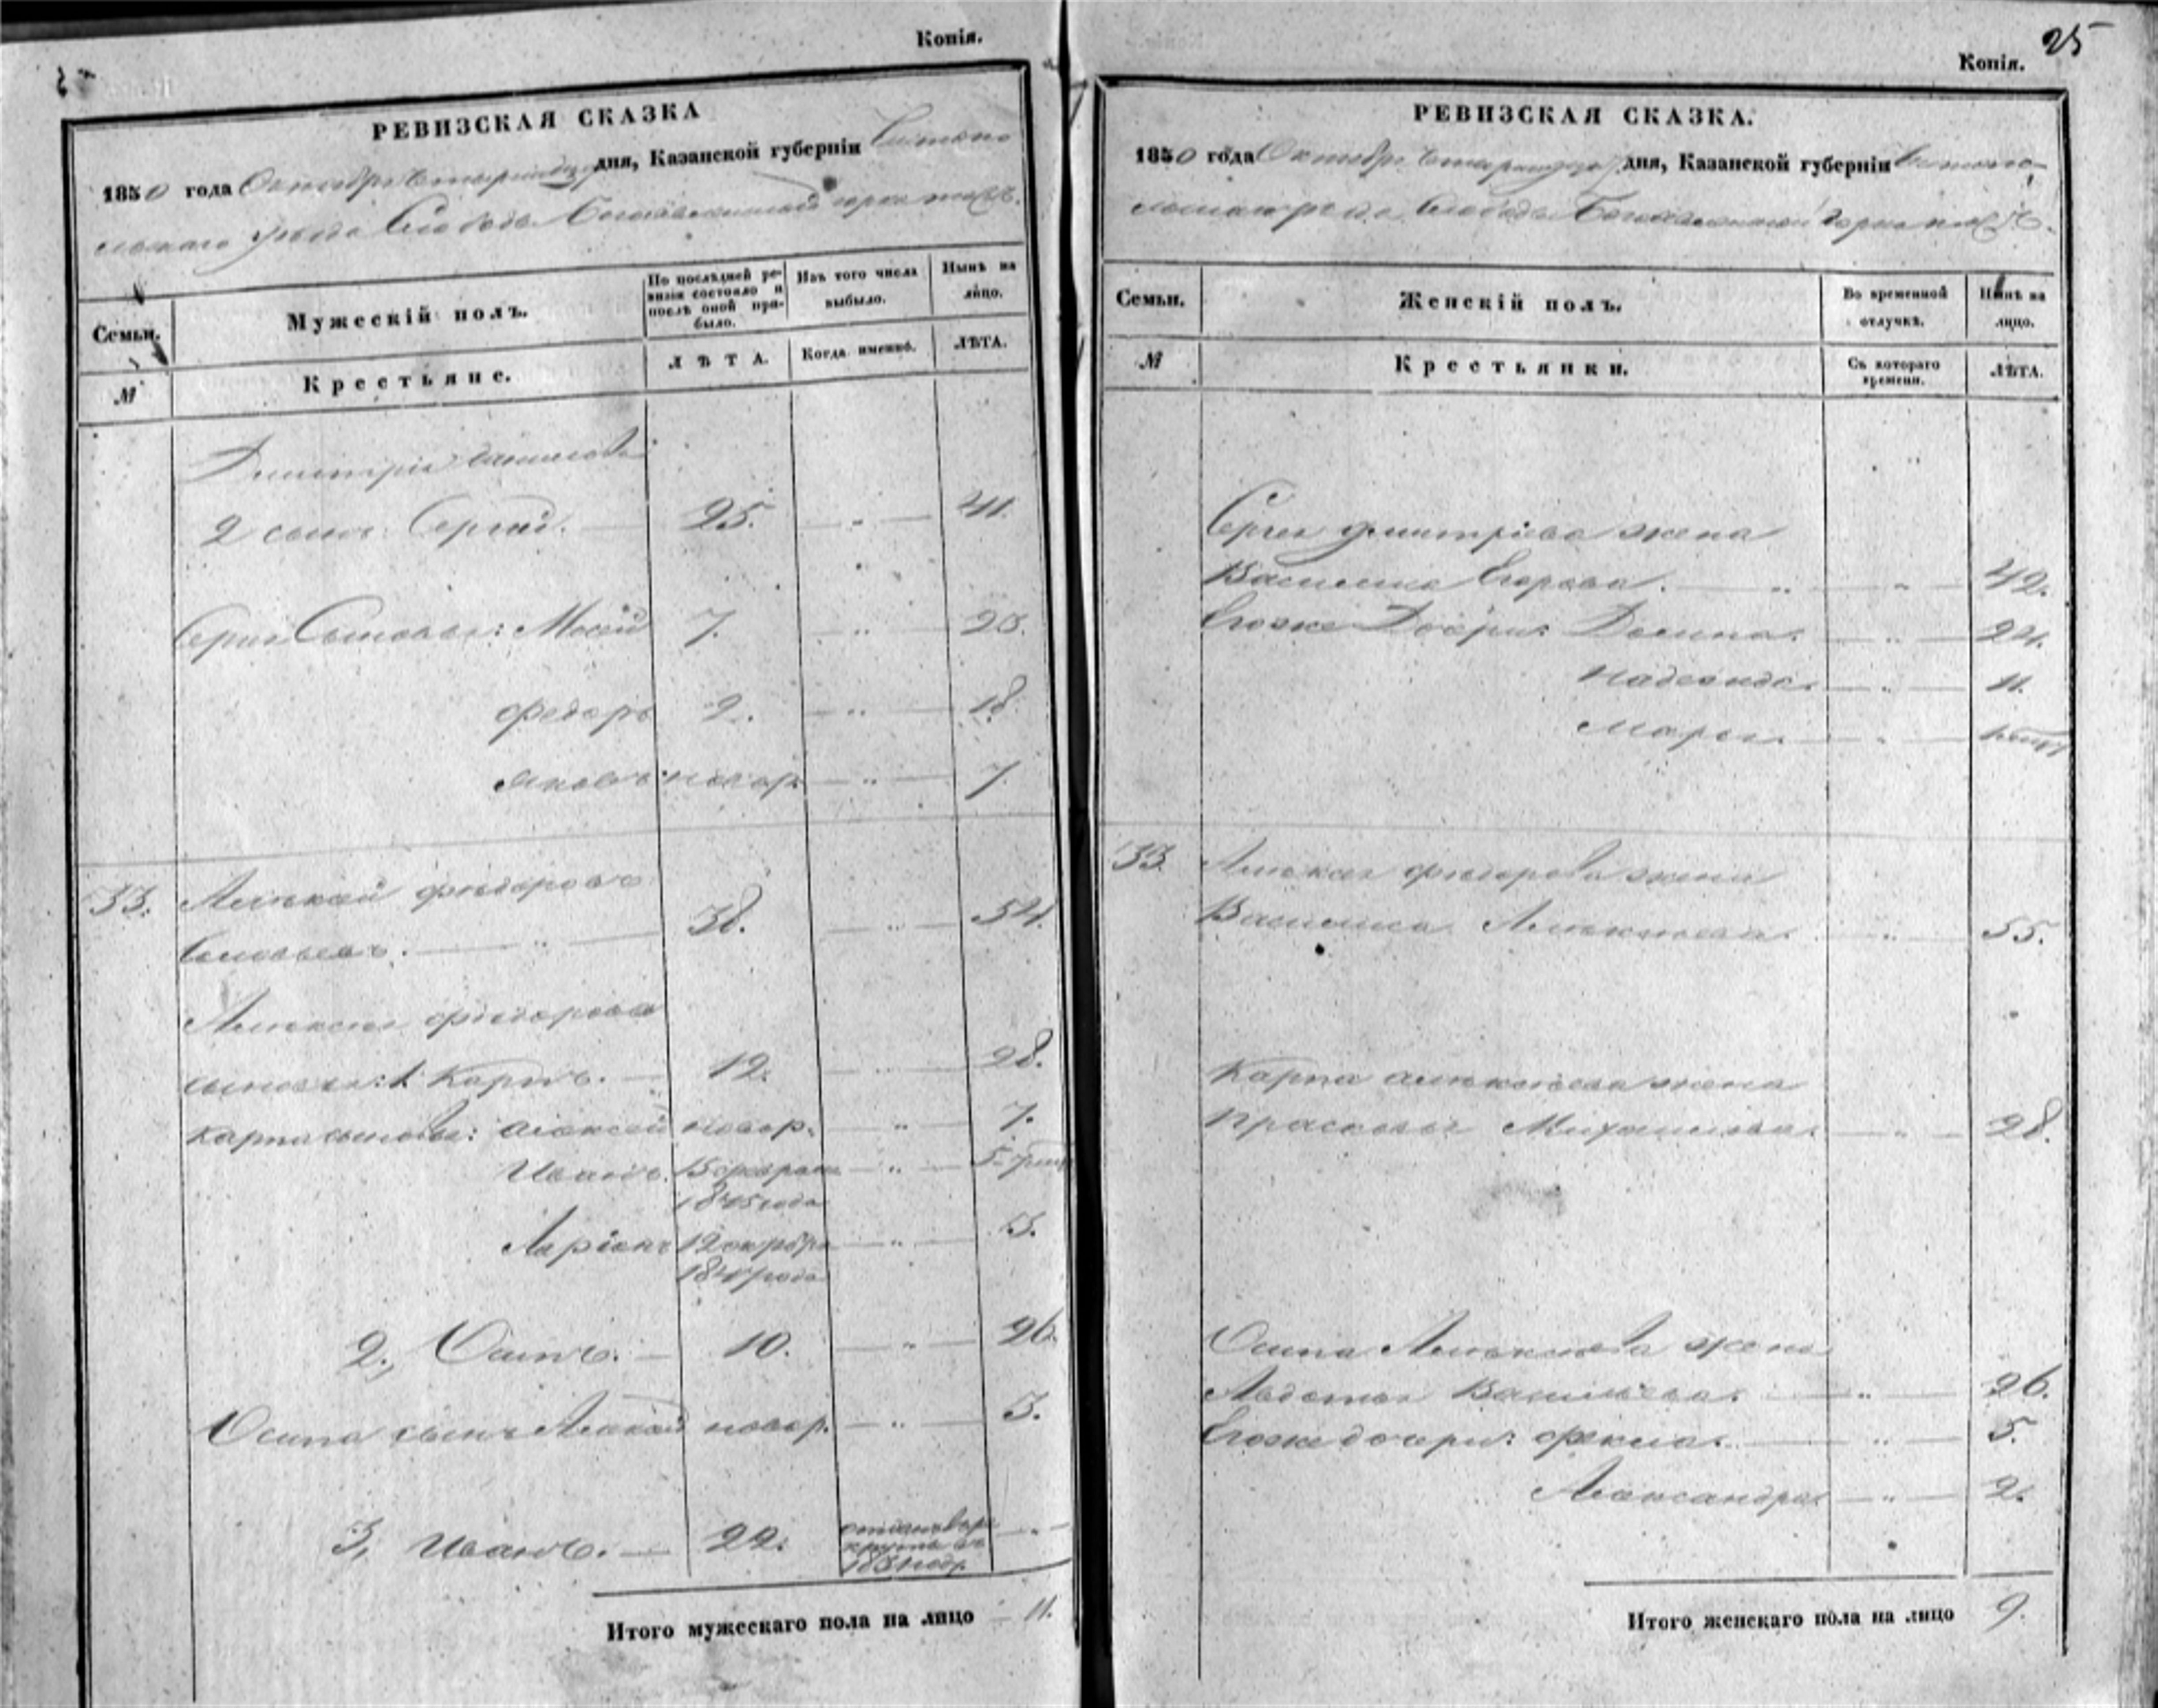 Копія.
РЕВИЗСКАЯ СКАЗКА
1850 года Октября дня, Казанской губерніи
Слободы Богоявленской
Семьи.
Мужескій полъ.
По послѣдней ревизіи состояло и послѣ оной прибыло.
Изъ того числа выбыло.
Нынѣ на лицо.
№
Крестьяне.
ЛѢТА.
Когда именно.
ЛѢТА.
Дмитрія
2 сынъ Сергей. 25. — " — 41.
Сергея Сыновья: Мосей 7. — " — 23.
Федоръ 2. — " — 18.
Яковъ новор. — " — 7.
33. Алексей Федоровъ
38. — " — 54.
Алексея Федорова
сыновья: 1 Карпъ. — 12. — " — 28.
Карпа сыновья: Алексей новор. — " — 7.
Иванъ. 15 февраля — " — 5
1845 года
Ларіонъ 12 октября — " — 3.
1847 года
2, Осипъ. — 10. — " — 26.
Осипа сынъ Алексей новор. — " — 3.
3, Иванъ. — 22. — " —
Итого мужескаго пола на лицо 11.
25
Копія.
РЕВИЗСКАЯ СКАЗКА.
1850 года Октября дня, Казанской губерніи
Слободы Богоявленской
Семьи.
Женскій полъ.
Во временной отлучкѣ.
Нынѣ на лицо.
№
Крестьянки.
Съ котораго времени.
ЛѢТА.
Сергея Дмитріева жена
Василиса Егорова. — " — 42.
Егоже Дочери: — " — 24.
Надежда. — " — 11.
Марья — " —
33. Алексея Федорова жена
Василиса Алексеева. — " — 55.
Карпа алексеева жена
Прасковья Михайлова. — " — 28.
Осипа Алексеева жена
Авдотья Васильева. — " — 26.
Егоже дочери: Фекла. — " — 5.
Александра — " — 2.
Итого женскаго пола на лицо 9.